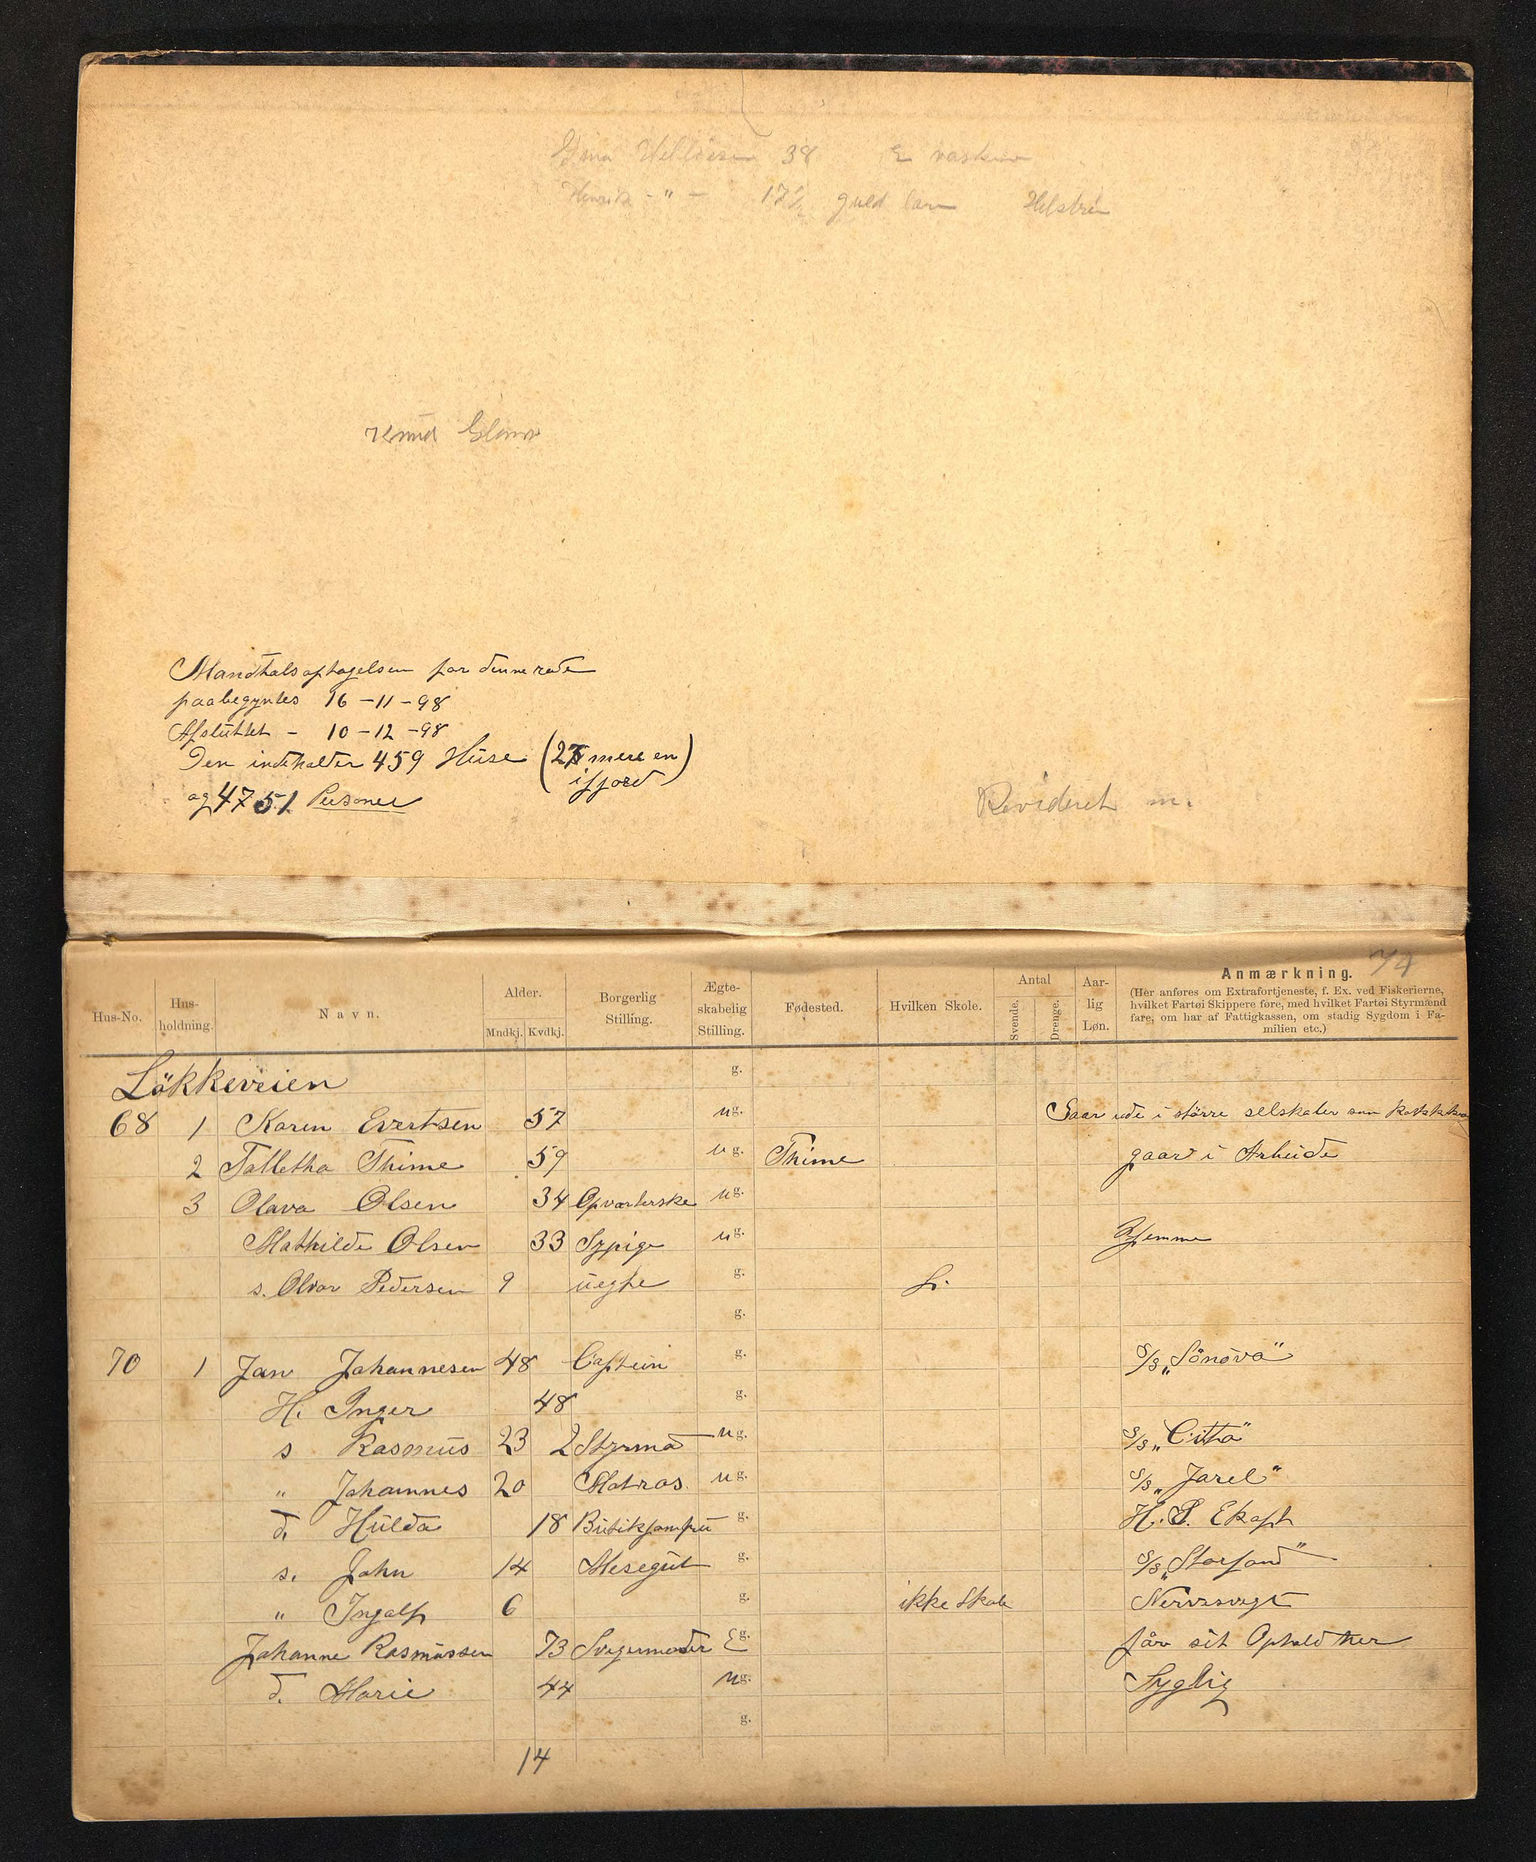 38 E vaskeri
Henrik - " - 17½ guld
Knud
Mandtalsoptagelsen for denne rode
paabegyntes 16-11-98
Afsluttet - 10-12-98
Den indeholder 459 Huse (27 mere en ifjord)
og 4751 Personer
Revideret m.
74
Hus-No. Hus-holdning. Navn. Alder. Mndkj. Kvdkj. Borgerlig Stilling. Ægte-skabelig Stilling. Fødested. Hvilken Skole. Antal Svende. Drenge. Aar-lig Løn. Anmærkning.
(Her anføres om Extrafortjeneste, f. Ex. ved Fiskerierne,
hvilket Fartøi Skippere føre, med hvilket Fartøi Styrmænd
fare, om har af Fattigkassen, om stadig Sygdom i Fa-
milien etc.)
Lökkeveien g.
68 1 Karen Evertsen 57 ug. ude i större selskaber som
2 Talletha Thime 59 ug. Thime gaar i Arbeide
3 Olava Olsen 34 Opvarterske ug.
Mathilde Olsen 33 Sypige ug. Hjemme
s. Olvar Pedersen 9 uegte g.
g.
70 1 Jan Johannesen 48 Captein g. S/S „Sönova"
H. Inger 48 g.
s Rasmus 23 2 Styrmd ug. S/S „Citta"
" Johannes 20 Matros ug. S/S „Jarel"
d. Hulda 18 Butikjomfru g. H. S. Ekoft
s. John 14 Mesegut g. S/S „Storfond"
" Ingolf 6 g. ikke Skole Nervesvagt
Johanne Rasmussen 73 Svigermoder Eg. får sit Ophold her
d. Marie 44 ug. Syglig
g.
14